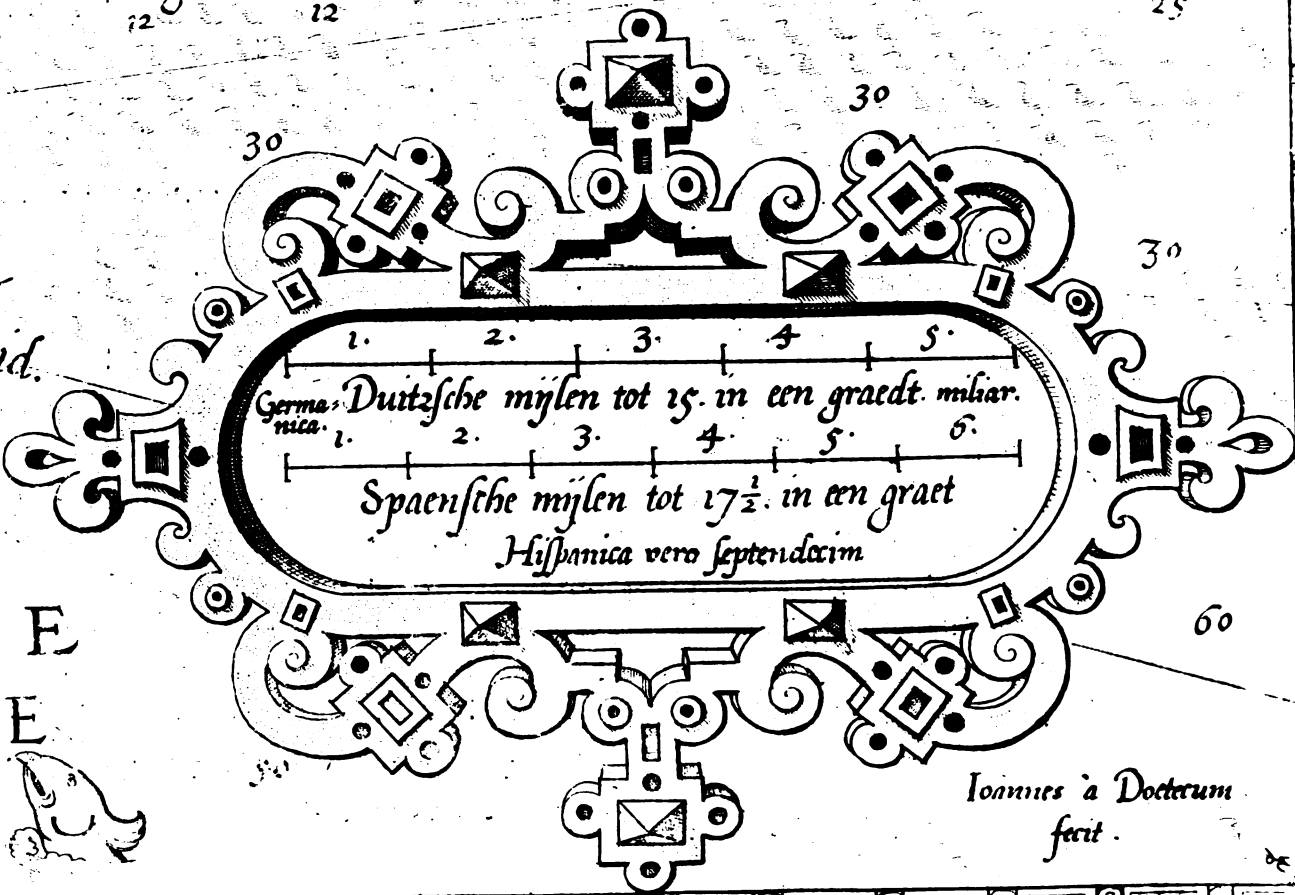 12 12 25
30 30
30
id.
1. 2. 3. 4 5.
Germa= Duitzſche mijlen tot 15. in een graedt. miliar.
nica.
1. 2. 3. 4. 5. 6.
Spaenſche mijlen tot 17 1/2. in een graet
Hiſpanica vero ſeptendecim
E
60
E
Ioannes à Doetecum
fecit.